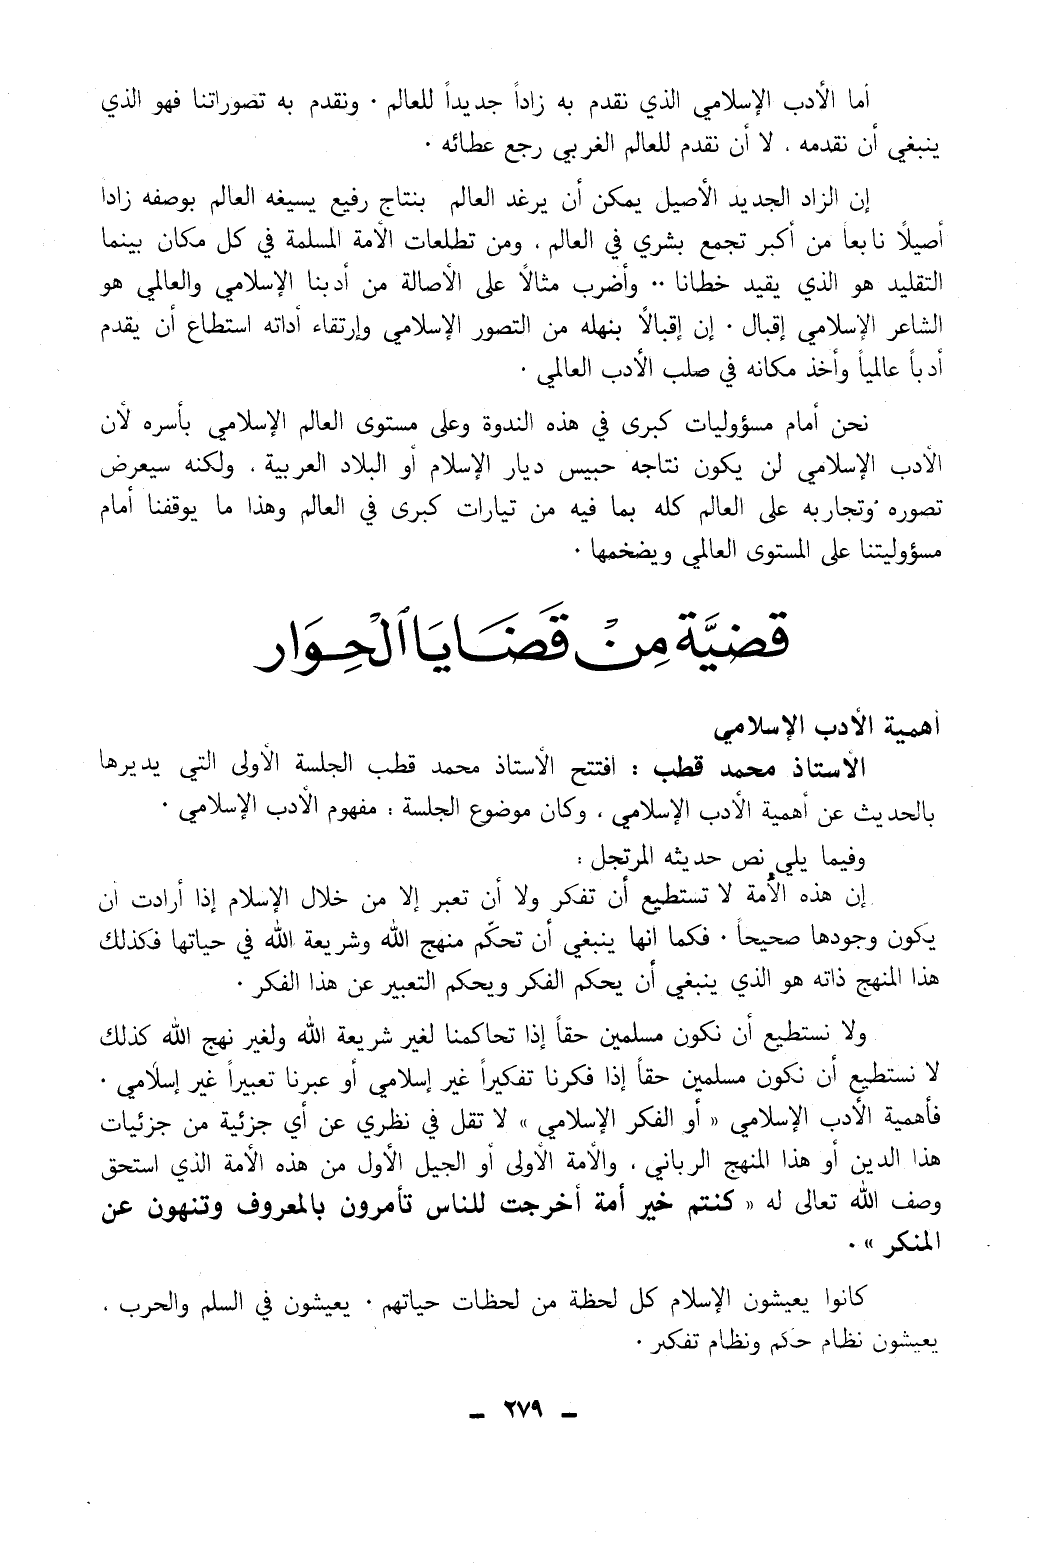 أما الأدب الإسلامي الذي نقدم به زاداً جديداً للعالم . ونقدم به تصوراتنا فهو الذي
ينبغي أن نقدمه ، لا أن نقدم للعالم الغربي رجع عطائه .
إن الزاد الجديد الأصيل يمكن أن يرغد العالم بنتاج رفيع يسيغه العالم بوصفه زادا
أصيلاً نابعاً من أكبر تجمع بشري في العالم ، ومن تطلعات الأمة المسلمة في كل مكان بينما
التقليد هو الذي يقيد خطانا .. وأضرب مثالاً على الأصالة من أدبنا الإسلامي والعالمي هو
الشاعر الإسلامي إقبال . إن إقبالاً بنهله من التصور الإسلامي وإرتقاء أداته استطاع أن يقدم
أدباً عالمياً وأخذ مكانه في صلب الأدب العالمي .
نحن أمام مسؤوليات كبرى في هذه الندوة وعلى مستوى العالم الإسلامي بأسره لأن
الأدب الإسلامي لن يكون نتاجه حبيس ديار الإسلام أو البلاد العربية ، ولكنه سيعرض
تصوره وتجاربه على العالم كله بما فيه من تيارات كبرى في العالم وهذا ما يوقفنا أمام
مسؤوليتنا على المستوى العالمي ويضخمها .
قضيَّة مِنْ قَضَايَا ٱلْحِوَار
أهمية الأدب الإسلامي
الأستاذ محمد قطب : افتتح الأستاذ محمد قطب الجلسة الأولى التي يديرها
بالحديث عن أهمية الأدب الإسلامي ، وكان موضوع الجلسة : مفهوم الأدب الإسلامي .
وفيما يلي نص حديثه المرتجل :
إن هذه الأمة لا تستطيع أن تفكر ولا أن تعبر إلا من خلال الإسلام إذا أرادت ان
يكون وجودها صحيحاً . فكما انها ينبغي أن تحكّم منهج الله وشريعة الله في حياتها فكذلك
هذا المنهج ذاته هو الذي ينبغي أن يحكم الفكر ويحكم التعبير عن هذا الفكر .
ولا نستطيع أن نكون مسلمين حقاً إذا تحاكمنا لغير شريعة الله ولغير نهج الله كذلك
لا نستطيع أن نكون مسلمين حقاً إذا فكرنا تفكيراً غير إسلامي أو عبرنا تعبيراً غير إسلامي .
فأهمية الأدب الإسلامي « أو الفكر الإسلامي » لا تقل في نظري عن أي جزئية من جزئيات
هذا الدين أو هذا المنهج الرباني ، والأمة الأولى أو الجيل الأول من هذه الأمة الذي استحق
وصف الله تعالى له « كنتم خير أمة أخرجت للناس تأمرون بالمعروف وتنهون عن
المنكر » .
كانوا يعيشون الإسلام كل لحظة من لحظات حياتهم . يعيشون في السلم والحرب ،
يعيشون نظام حكم ونظام تفكير .
ـ ٢٧٩ ـ